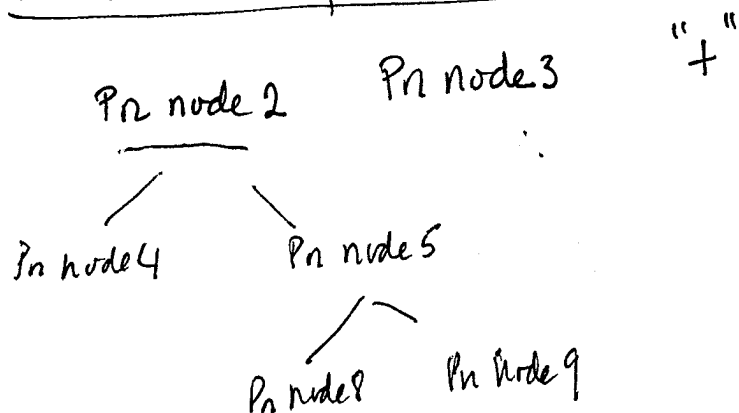 Pn node 2 Pn node 3 "+"
Pn node 4 Pn node 5
Pn node 8 Pn node 9